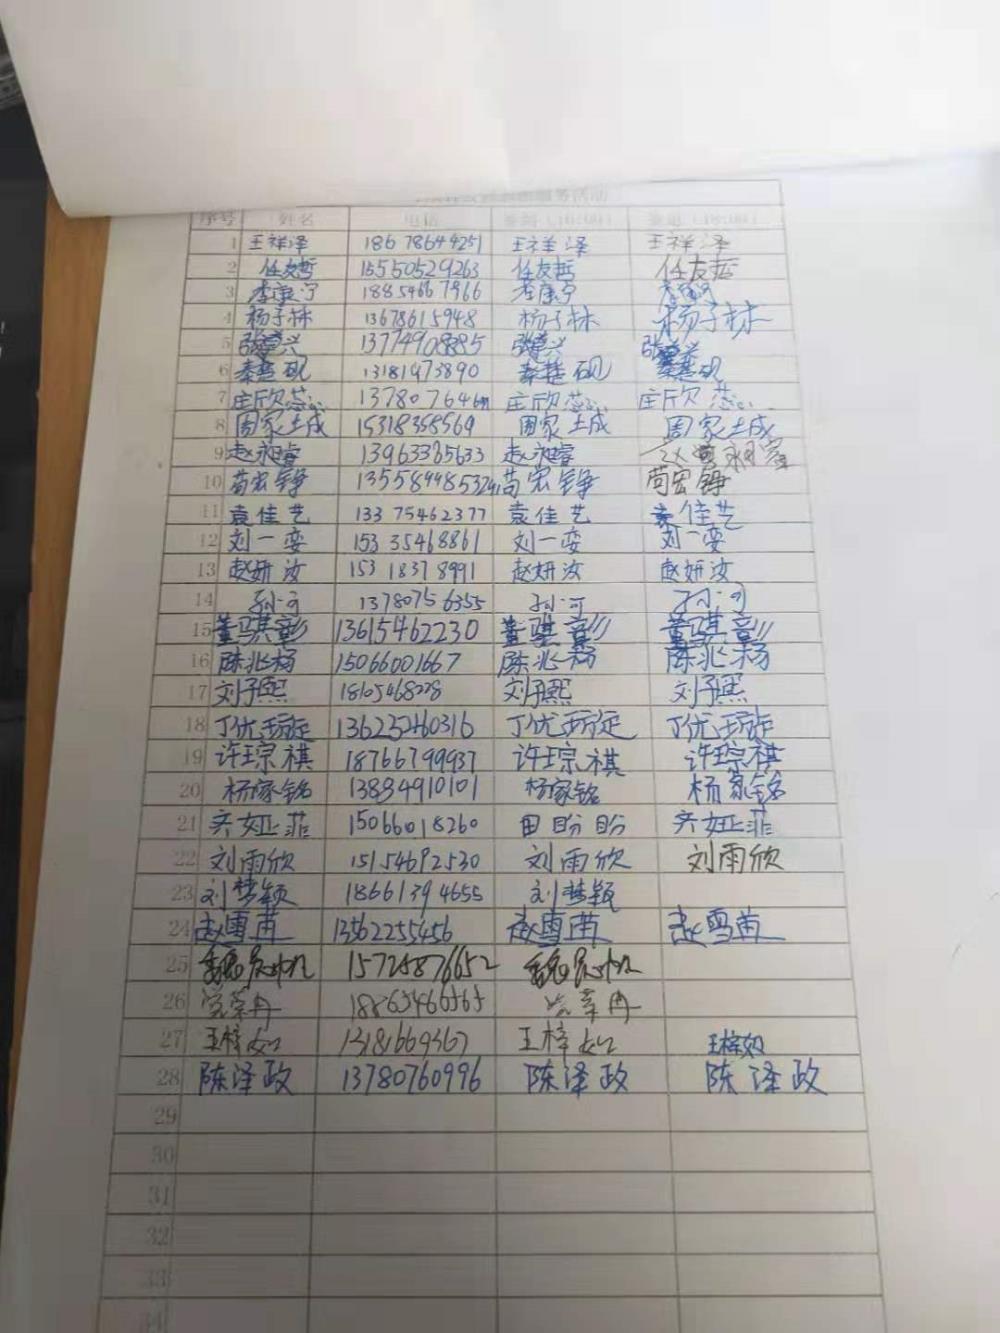 服务活动
序号 姓名 电话 签到（16:00） 签退（18:00）
1 王祥泽 18678644251 王祥泽 王祥泽
2 任友哲 15550529263 任友哲 任友哲
3 李康宁 18854667966 李康宁 李康宁
4 杨子林 13678615948 杨子林 杨子林
5 13774908885
6 秦楚砚 13181473890 秦楚砚 秦楚砚
7 庄欣蕊 庄欣蕊 庄欣蕊
8 周家土成 15318358569 周家土成 周家土成
9 赵昶睿 13963385633 赵昶睿
10 苟宏铮 苟宏铮 苟宏铮
11 袁佳艺 13375462377 袁佳艺 袁佳艺
12 刘一娈 15335468861 刘一娈 刘一娈
13 赵妍汝 15318378991 赵妍汝 赵妍汝
14 孙可 13780756355 孙可 孙可
15 董骐彰 13615462230 董骐彰 董骐彰
16 陈兆杨 15066001667 陈兆杨 陈兆杨
17 刘子熙 刘子熙 刘子熙
18 丁优璇 13625460316 丁优璇 丁优璇
19 许琮祺 18766799937 许琮祺 许琮祺
20 杨家铭 13884910101 杨家铭 杨家铭
21 齐娅菲 15066018260 田盼盼 齐娅菲
22 刘雨欣 15154692530 刘雨欣 刘雨欣
23 刘梦颖 18661394655 刘梦颖
24 赵雪茜 13562255456 赵雪茜 赵雪茜
25 15725876652
26 18865466565
27 王梓如 13181669367 王梓如 王梓如
28 陈泽政 13780760996 陈泽政 陈泽政
29
30
31
32
33
34